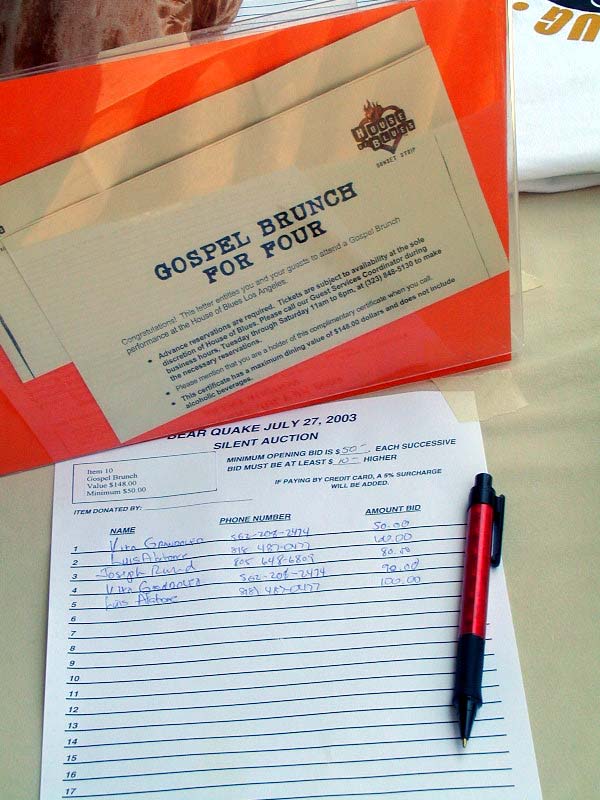 UG.
HOUSE
OF BLUES
SUNSET STRIP
GOSPEL BRUNCH
FOR FOUR
Congratulations! This letter entitles you and your guests to attend a Gospel Brunch
performance at the House of Blues Los Angeles.
Advance reservations are required. Tickets are subject to availability at the sole
discretion of House of Blues. Please call our Guest Services Coordinator during
business hours, Tuesday through Saturday 11am to 6pm, at (323) 848-5130 to make
the necessary reservations.
Please mention that you are a holder of this complimentary certificate when you call.
This certificate has a maximum dining value of $148.00 dollars and does not include
alcoholic beverages.
BEAR QUAKE JULY 27, 2003
SILENT AUCTION
Item 10
Gospel Brunch
Value $148.00
Minimum $50.00
MINIMUM OPENING BID IS $ 50- . EACH SUCCESSIVE
BID MUST BE AT LEAST $ 10- HIGHER
IF PAYING BY CREDIT CARD, A 5% SURCHARGE
WILL BE ADDED.
ITEM DONATED BY:
NAME PHONE NUMBER AMOUNT BID
1 562-208-2474 50.00
2 Luis 818 487-0177 60.00
3 Joseph 805 648-6809 80.00
4 562-208-2474 90.00
5 Luis 818) 487-0177 100.00
6
7
8
9
10
11
12
13
14
15
16
17